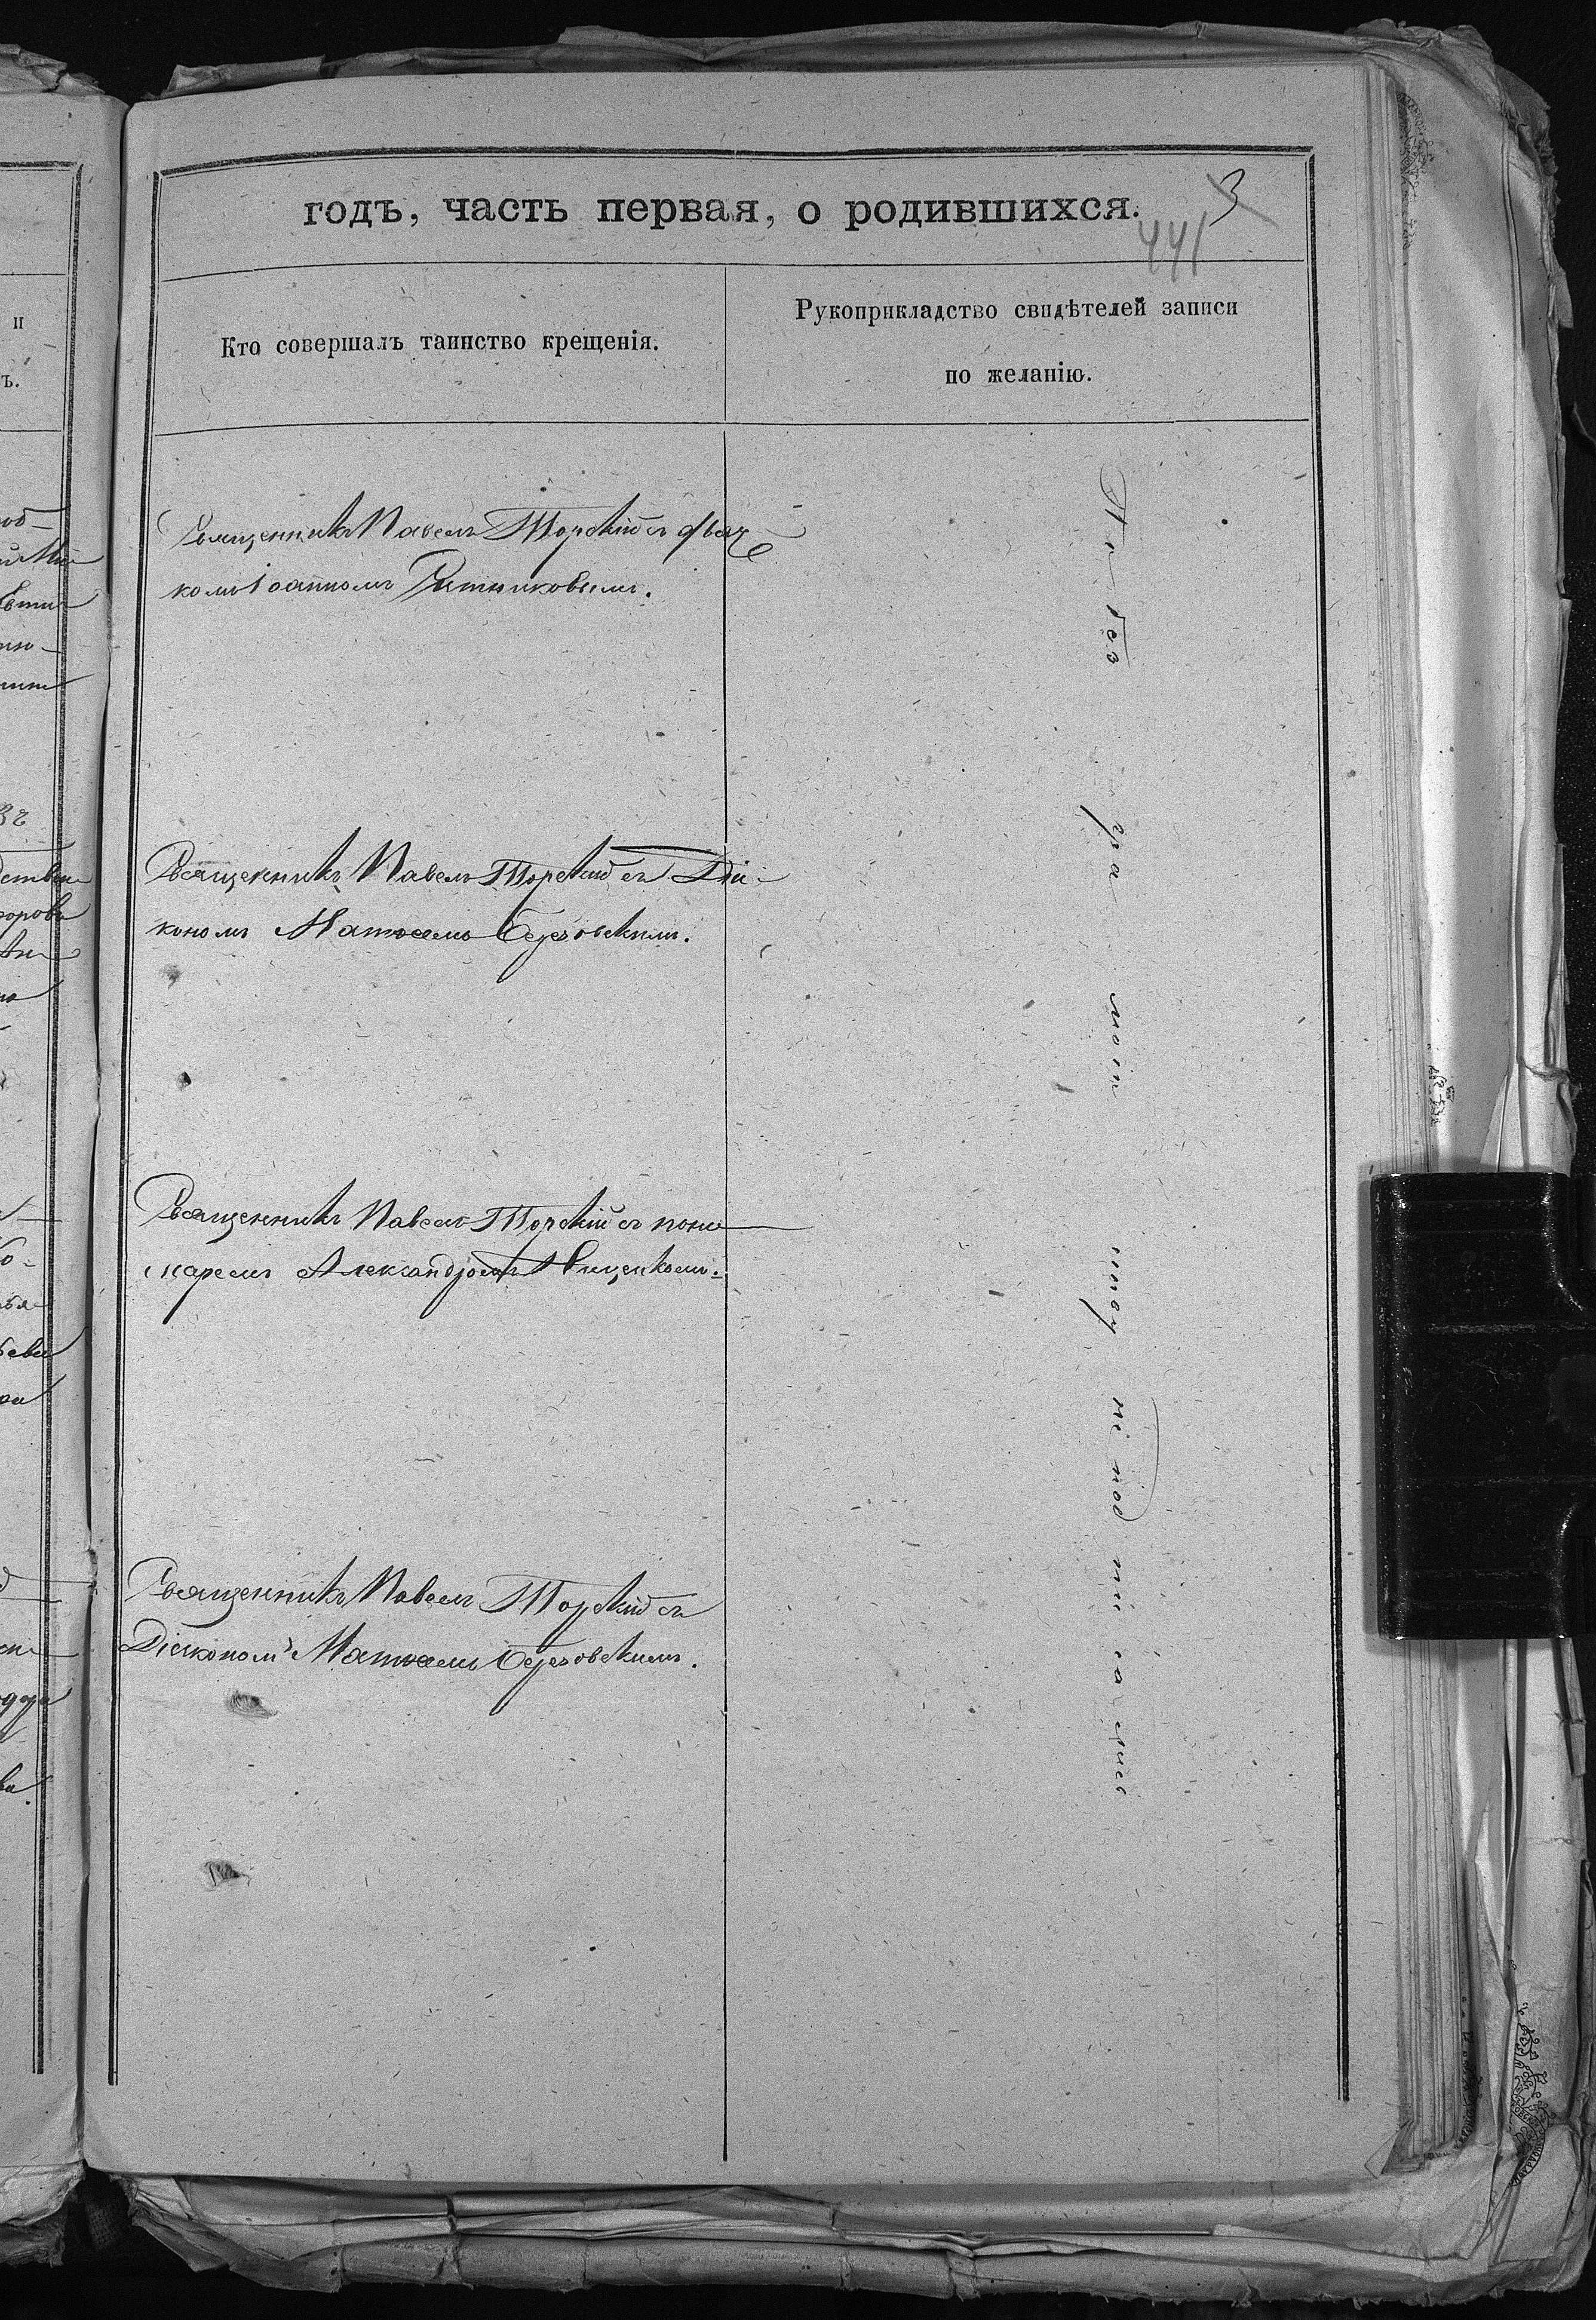 годъ, часть первая, о родившихся.
3
441
Кто совершалъ таинство крещенія.
Рукоприкладство свидѣтелей записи
по желанію.
Священникъ Павелъ Торскій съ дьяч
комъ Іоанномъ Ситниковымъ.
Священникъ Павелъ Торскій съ Діа
кономъ Матѳеемъ Березовскимъ.
Священникъ Павелъ Торскій съ поно
маремъ Александромъ
Священникъ Павелъ Торскій съ
Діакономъ Матѳеемъ Березовскимъ.
По без гра мот ству не под пи са лись